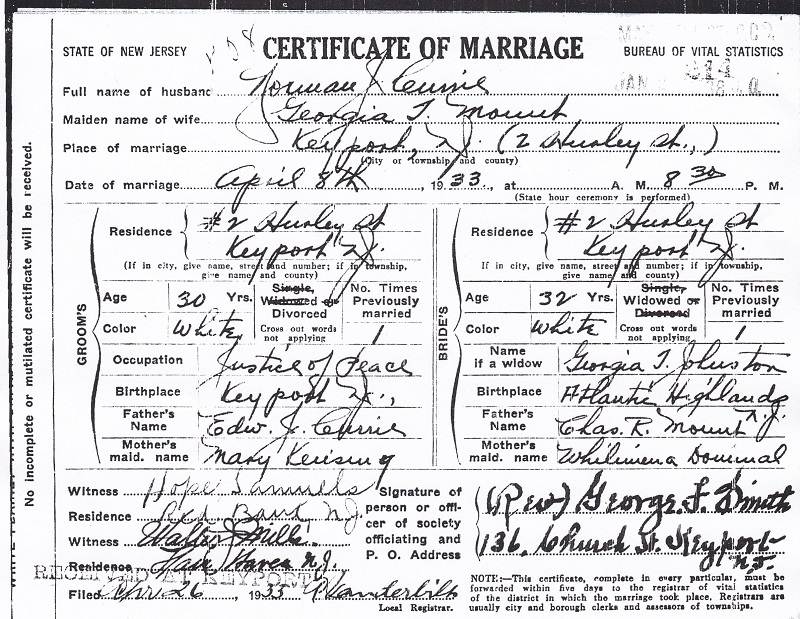 STATE OF NEW JERSEY
CERTIFICATE OF MARRIAGE
BUREAU OF VITAL STATISTICS
Full name of husband Norman J. Currie
Maiden name of wife Georgia T. Mount
Place of marriage Keyport, N.J. (2 Hurley St.,)
(City or township and county)
Date of marriage April 8th, 1933, at A. M. 8 30 P. M.
(State hour ceremony is performed)
No incomplete or mutilated certificate will be received.
GROOM'S
Residence #2 Hurley St
Keyport N.J.
(If in city, give name, street and number; if in township, give name and county)
Age 30 Yrs.
Single, Widowed or Divorced
Cross out words not applying
No. Times Previously married 1
Color White
Occupation Justice of Peace
Birthplace Keyport N.J.,
Father's Name Edw. J. Currie
Mother's maid. name Mary
BRIDE'S
Residence #2 Hurley St
Keyport N.J.
(If in city, give name, street and number; if in township, give name and county)
Age 32 Yrs.
Single, Widowed or Divorced
Cross out words not applying
No. Times Previously married 1
Color White
Name if a widow Georgia T. Johnston
Birthplace Atlantic Highlands N.J.
Father's Name Chas. R. Mount
Mother's maid. name
Witness Hope Samuels
Residence Red Bank N.J.
Witness Walter
Residence N.J.
RECEIVED AT KEYPORT
Filed Apr 26 1933 Vanderbilt
Local Registrar.
Signature of person or officer of society officiating and P. O. Address
(Rev) George F.
136 Church St Keyport
N.J.
NOTE:—This certificate, complete in every particular, must be
forwarded within five days to the registrar of vital statistics
of the district in which the marriage took place. Registrars are
usually city and borough clerks and assessors of townships.